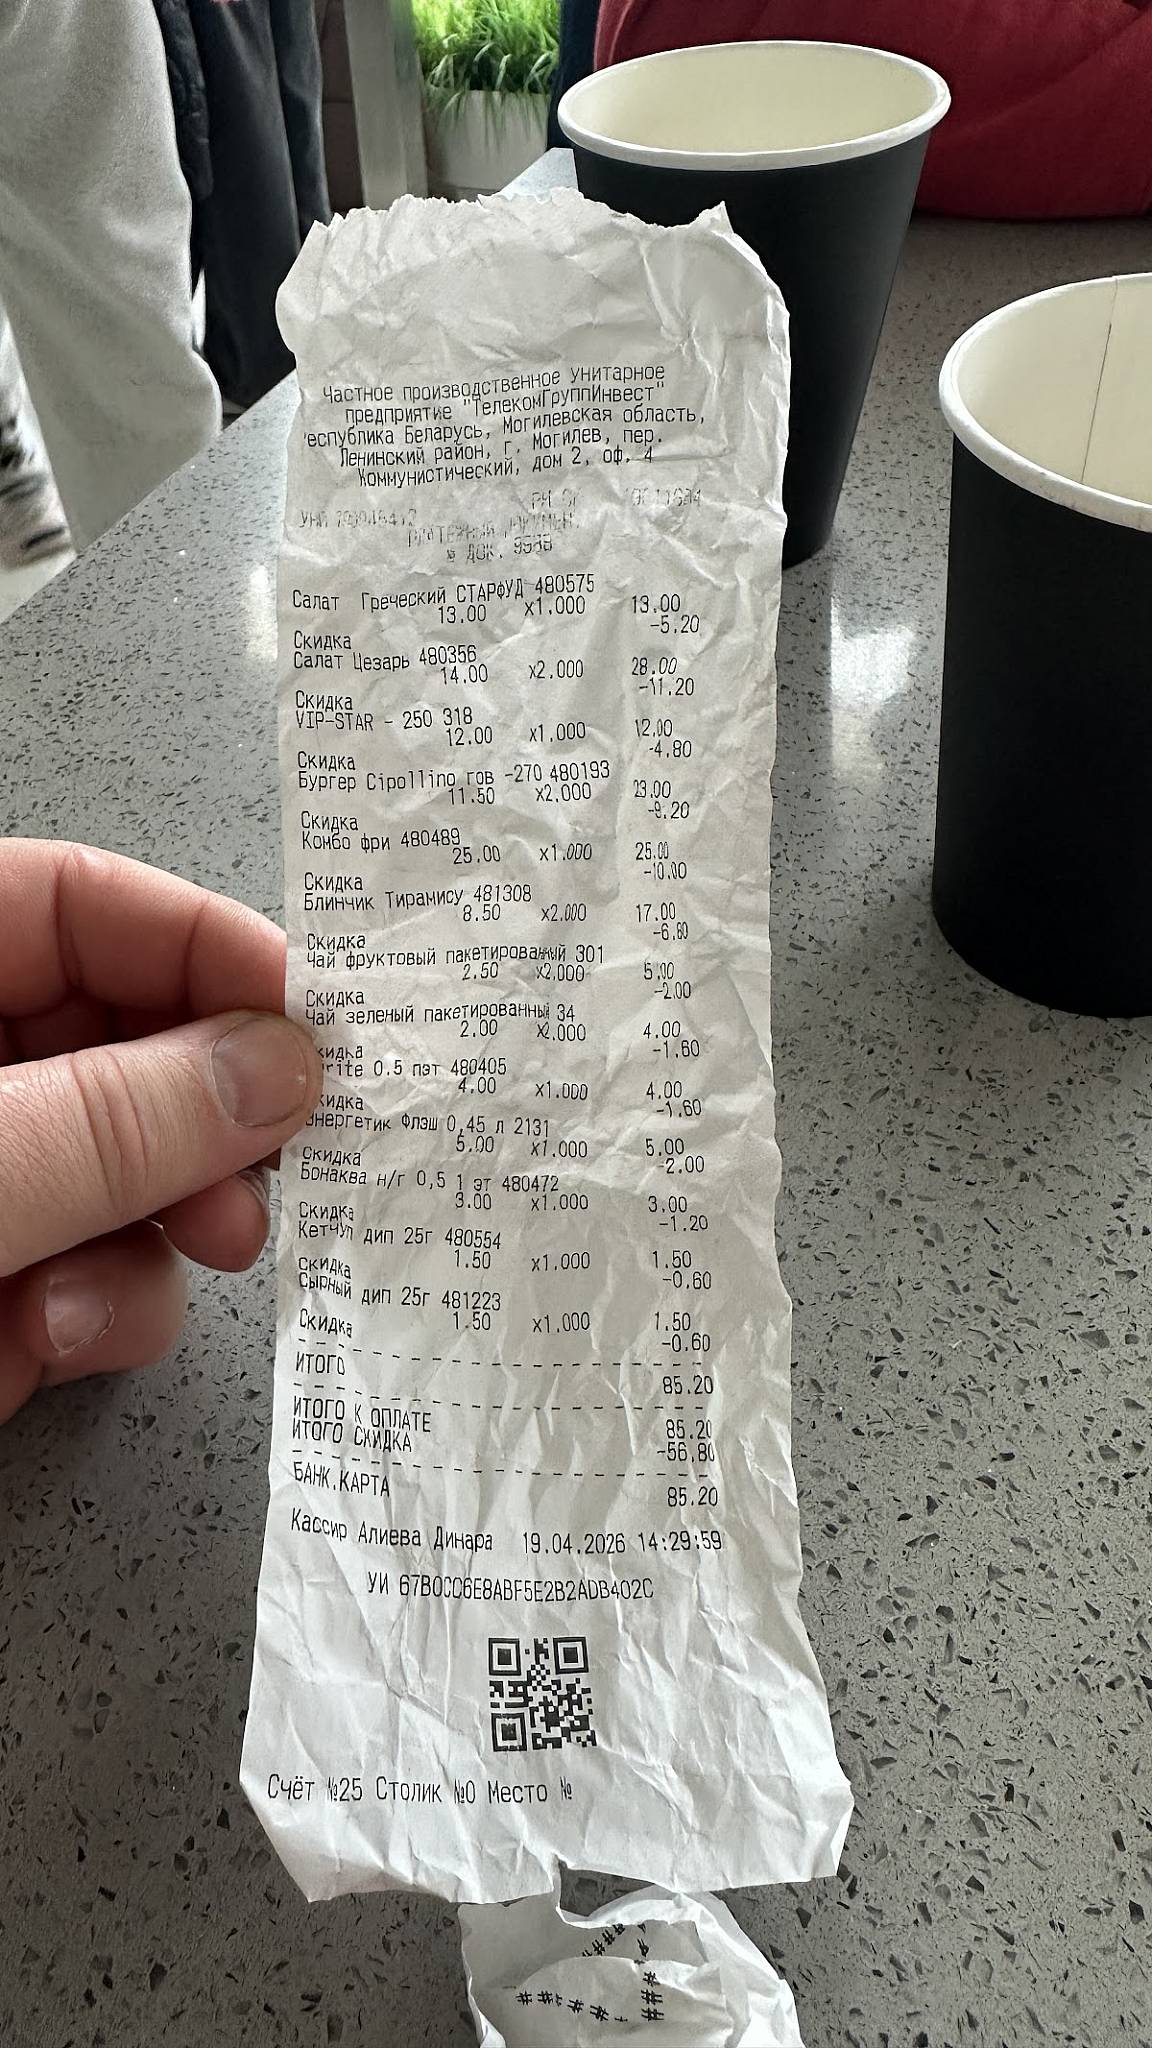 Частное производственное унитарное
предприятие "ТелекомГруппИнвест"
еспублика Беларусь, Могилевская область,
Ленинский район, г. Могилев, пер.
Коммунистический, дом 2, оф. 4
УНП
ПЛАТЕЖНЫЙ ДОКУМЕНТ
№ ДОК. 9588
Салат Греческий СТАРФУД 480575
13.00 x1.000 13.00
Скидка -5.20
Салат Цезарь 480356
14.00 x2.000 28.00
Скидка -11.20
VIP-STAR - 250 318
12.00 x1.000 12.00
Скидка -4.80
Бургер Cipollino гов -270 480193
11.50 x2.000 23.00
Скидка -9.20
Комбо фри 480489
25.00 x1.000 25.00
Скидка -10.00
Блинчик Тирамису 481308
8.50 x2.000 17.00
Скидка -6.80
Чай фруктовый пакетированный 301
2.50 x2.000 5.00
Скидка -2.00
Чай зеленый пакетированный 34
2.00 x2.000 4.00
кидка -1.60
rite 0.5 пэт 480405
4.00 x1.000 4.00
кидка -1.60
Энергетик Флэш 0,45 л 2131
5.00 x1.000 5.00
Скидка -2.00
Бонаква н/г 0,5 l эт 480472
3.00 x1.000 3.00
Скидка -1.20
Кетчуп дип 25г 480554
1.50 x1.000 1.50
Скидка -0.60
Сырный дип 25г 481223
1.50 x1.000 1.50
Скидка -0.60
ИТОГО 85.20
ИТОГО К ОПЛАТЕ 85.20
ИТОГО СКИДКА -56.80
БАНК.КАРТА 85.20
Кассир Алиева Динара 19.04.2026 14:29:59
УИ 67B0CC6E8ABF5E2B2ADB402C
Счёт №25 Столик №0 Место №